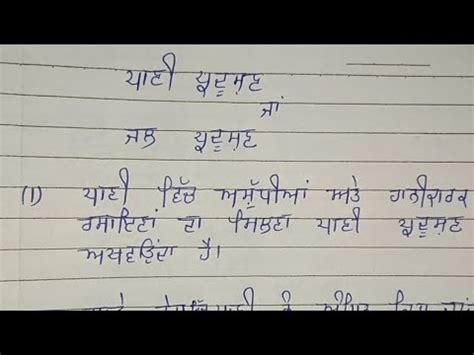 ਪਾਣੀ ਪ੍ਰਦੂਸ਼ਣ
ਜਾਂ
ਜਲ ਪ੍ਰਦੂਸ਼ਣ
(1) ਪਾਣੀ ਵਿੱਚ ਅਸ਼ੁੱਧੀਆਂ ਅਤੇ ਹਾਨੀਕਾਰਕ
ਰਸਾਇਣਾਂ ਦਾ ਮਿਲਣਾ ਪਾਣੀ ਪ੍ਰਦੂਸ਼ਣ
ਅਖਵਾਉਂਦਾ ਹੈ।